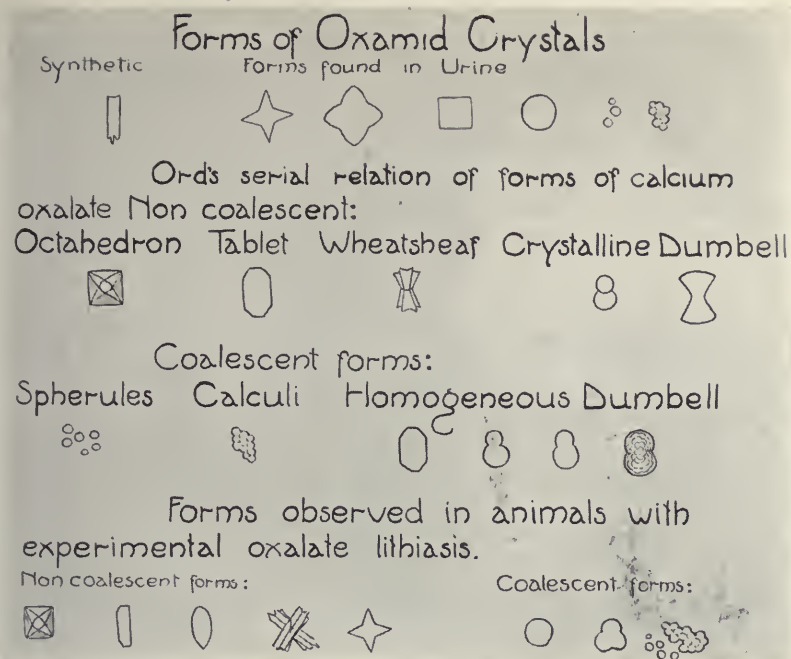 Forms of Oxamid Crystals
Synthetic Forms found in Urine
Ord's serial relation of forms of calcium
oxalate Non coalescent:
Octahedron Tablet Wheatsheaf Crystalline Dumbell
Coalescent forms:
Spherules Calculi Homogeneous Dumbell
Forms observed in animals with
experimental oxalate lithiasis.
Non coalescent forms: Coalescent forms: